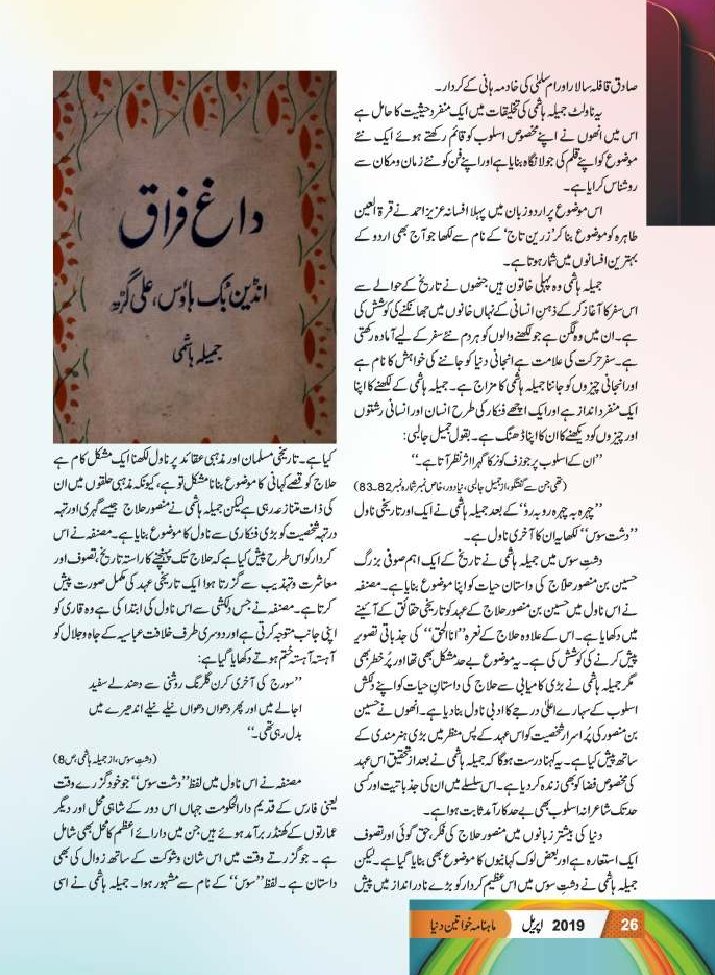 صادق قافلہ سالار اور ام سلمٰی کی خادمہ ہانی کے کردار۔
یہ ناولٹ جمیلہ ہاشمی کی تخلیقات میں ایک منفرد حیثیت کا حامل ہے
اس میں انھوں نے اپنے مخصوص اسلوب کو قائم رکھتے ہوئے ایک نئے
موضوع کو اپنے قلم کی جولانگاہ بنایا ہے اور اپنے فن کو نئے زمان و مکان سے
روشناس کرایا ہے۔
اس موضوع پر اردو زبان میں پہلا افسانہ عزیز احمد نے قرۃ العین
طاہرہ کو موضوع بنا کر ’زرین تاج‘ کے نام سے لکھا جو آج بھی اردو کے
بہترین افسانوں میں شمار ہوتا ہے۔
جمیلہ ہاشمی وہ پہلی خاتون ہیں جنھوں نے تاریخ کے حوالے سے
اس سفر کا آغاز کر کے ذہنِ انسانی کے نہاں خانوں میں جھانکنے کی کوشش کی
ہے۔ ان میں وہ لگن ہے جو لکھنے والوں کو ہر دم نئے سفر کے لیے آمادہ رکھتی
ہے۔ سفر حرکت کی علامت ہے انجانی دنیا کو جاننے کی خواہش کا نام ہے
اور انجانی چیزوں کو جاننا جمیلہ ہاشمی کا مزاج ہے۔ جمیلہ ہاشمی کے لکھنے کا اپنا
ایک منفرد انداز ہے اور ایک اچھے فنکار کی طرح انسان اور انسانی رشتوں
اور چیزوں کو دیکھنے کا ان کا اپنا ڈھنگ ہے۔ بقول جمیل جالبی:
’’ان کے اسلوب پر جوزف کونرڈ کا گہرا اثر نظر آتا ہے۔‘‘
(تھی جن سے گفتگو، از جمیل جالبی، نیا دور، خاص نمبر شمارہ نمبر 82۔83)
’’چہرہ بہ چہرہ رو بہ رو‘‘ کے بعد جمیلہ ہاشمی نے ایک اور تاریخی ناول
’’دشت سوس‘‘ لکھا یہ ان کا آخری ناول ہے۔
دشتِ سوس میں جمیلہ ہاشمی نے تاریخ کے ایک اہم صوفی بزرگ
حسین بن منصور حلاج کی داستان حیات کو اپنا موضوع بنایا ہے۔ مصنفہ
نے اس ناول میں حسین بن منصور حلاج کے عہد کو تاریخی حقائق کے آئینے
میں دکھایا ہے۔ اس کے علاوہ حلاج کے نعرہ ’’انا الحق‘‘ کی جذباتی تصویر
پیش کرنے کی کوشش کی ہے۔ یہ موضوع بے حد مشکل بھی تھا اور پُر خطر بھی
مگر جمیلہ ہاشمی نے بڑی کامیابی سے حلاج کی داستانِ حیات کو اپنے دلکش
اسلوب کے سہارے اعلیٰ درجے کا ادبی ناول بنا دیا ہے۔ انھوں نے حسین
بن منصور کی پُر اسرار شخصیت کو اس عہد کے پس منظر میں بڑی ہنرمندی کے
ساتھ پیش کیا ہے۔ یہ کہنا درست ہوگا کہ جمیلہ ہاشمی نے بعد از تحقیق اس عہد
کی مخصوص فضا کو بھی زندہ کر دیا ہے۔ اس سلسلے میں ان کی جذباتیت اور کسی
حد تک شاعرانہ اسلوب بھی بے حد کارآمد ثابت ہوا ہے۔
دنیا کی بیشتر زبانوں میں منصور حلاج کی فکر، حق گوئی اور تصوف
ایک استعارہ ہے اور بعض لوک کہانیوں کا موضوع بھی بنایا گیا ہے۔ لیکن
جمیلہ ہاشمی نے دشتِ سوس میں اس عظیم کردار کو بڑے نادر انداز میں پیش
داغِ فراق
انڈین بُک ہاؤس، علی گڑھ
جمیلہ ہاشمی
کیا ہے۔ تاریخی مسلمان اور مذہبی عقائد پر ناول لکھنا ایک مشکل کام ہے
حلاج کو قصے کہانی کا موضوع بنانا مشکل تو ہے، کیونکہ مذہبی حلقوں میں ان
کی ذات متنازعہ رہی ہے لیکن جمیلہ ہاشمی نے منصور حلاج جیسے گہری اور تہہ
در تہہ شخصیت کو بڑی فنکاری سے ناول کا موضوع بنایا ہے۔ مصنفہ نے اس
کردار کو اس طرح پیش کیا ہے کہ حلاج تک پہنچنے کا راستہ تاریخ، تصوف اور
معاشرت و تہذیب سے گزرتا ہوا ایک تاریخی عہد کی مکمل صورت پیش
کرتا ہے۔ مصنفہ نے جس دلکشی سے اس ناول کی ابتدا کی ہے وہ قاری کو
اپنی جانب متوجہ کرتی ہے اور دوسری طرف خلافت عباسیہ کے جاہ و جلال کو
آہستہ آہستہ ختم ہوتے دکھایا گیا ہے:
’’سورج کی آخری کرن گلرنگ روشنی سے دھندلے سفید
اجالے میں اور پھر دھواں دھواں نیلے نیلے اندھیرے میں
بدل رہی تھی۔‘‘
(دشتِ سوس، از جمیلہ ہاشمی ص 8)
مصنفہ نے اس ناول میں لفظ ’’دشت سوس‘‘ جو خود گزرے وقت
یعنی فارس کے قدیم دارالحکومت جہاں اس دور کے شاہی محل اور دیگر
عمارتوں کے کھنڈر برآمد ہوئے ہیں جن میں دارائے اعظم کا محل بھی شامل
ہے۔ جو گزرتے وقت میں اس شان و شوکت کے ساتھ زوال کی بھی
داستان ہے۔ لفظ ’’سوس‘‘ کے نام سے مشہور ہوا۔ جمیلہ ہاشمی نے اسی
ماہنامہ خواتین دنیا اپریل 2019 26